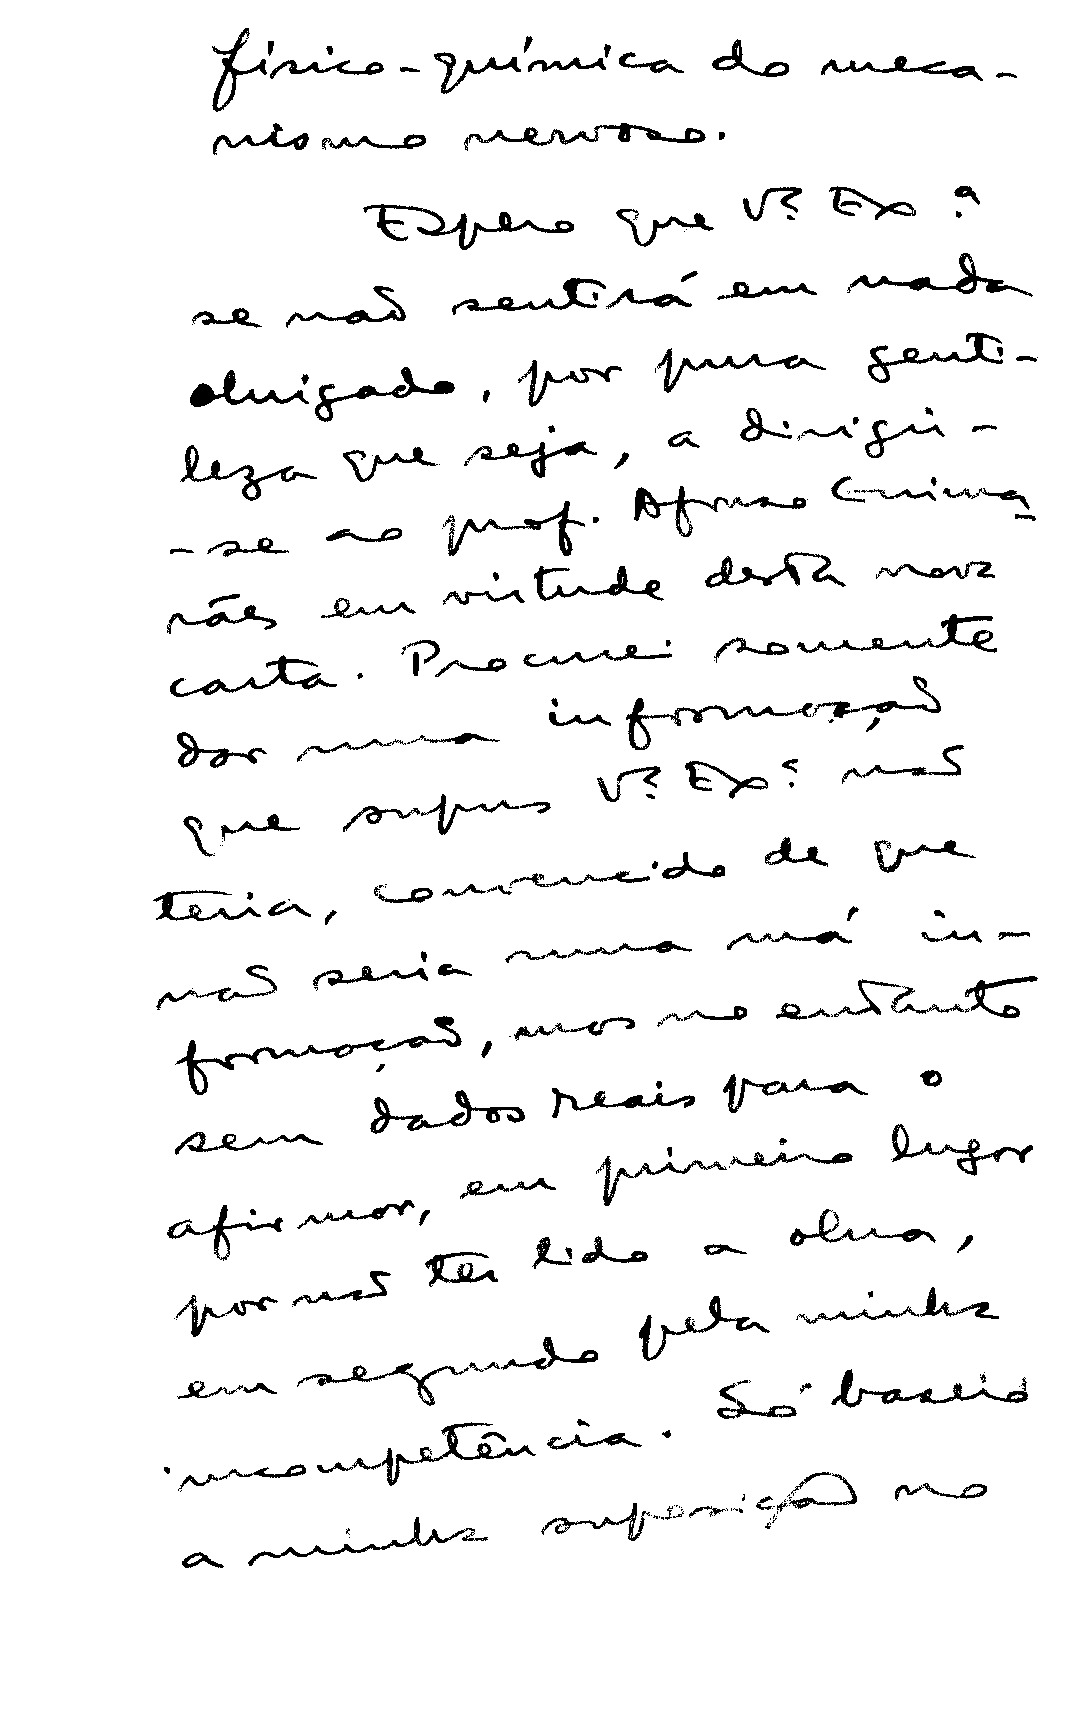 físico-química do meca-
nismo nervoso.
Espero que V.ª Ex.ª
se não sentirá em nada
obrigado, por pura genti-
leza que seja, a dirigir-
-se ao prof. Afonso Guima-
rães em virtude desta nova
carta. Procurei somente
dar uma informação
que supus V.ª Ex.ª não
teria, convencido de que
não seria uma má in-
formação, mas no entanto
sem dados reais para o
afirmar, em primeiro lugar
por não ter lido a obra,
em segundo pela minha
incompetência. Só baseio
a minha suposição no